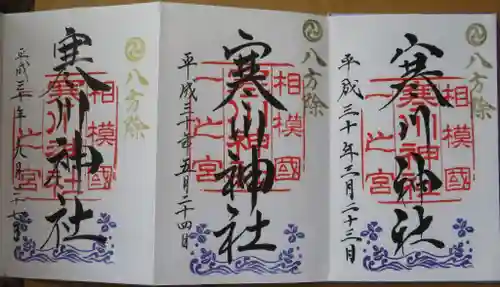 八方除
相模國
一之宮
寒川神社
平成三十年三月二十三日
八方除
相模國
一之宮
寒川神社
平成三十年五月二十四日
八方除
相模國
一之宮
寒川神社
平成三十年九月二十七日